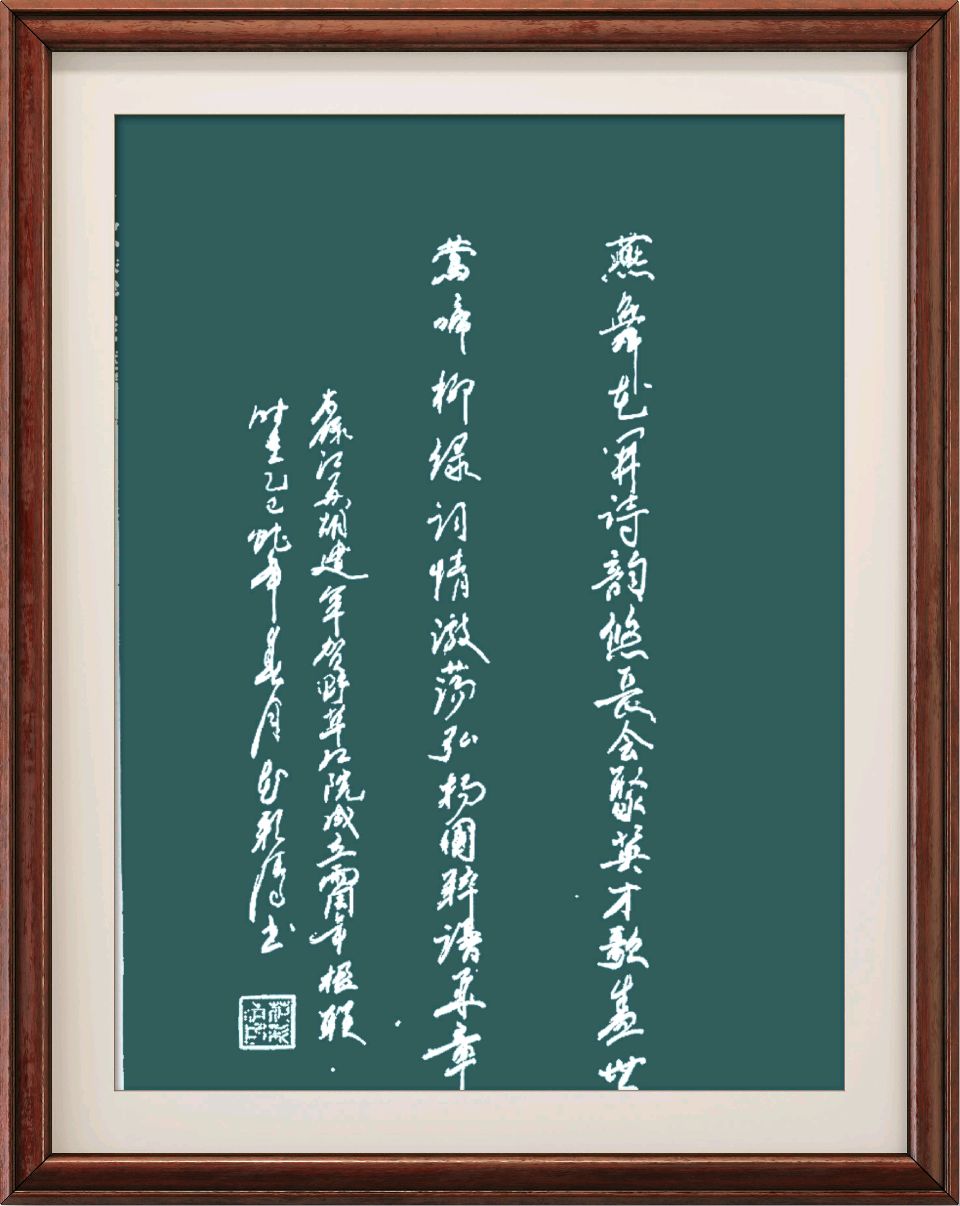 燕舞花开诗韵悠长会聚英才歌盛世
莺啼柳绿词情激荡弘扬国粹谱华章
江苏胡建年贺野草诗院成立周年楹联
时在乙巳蛇年春月 书